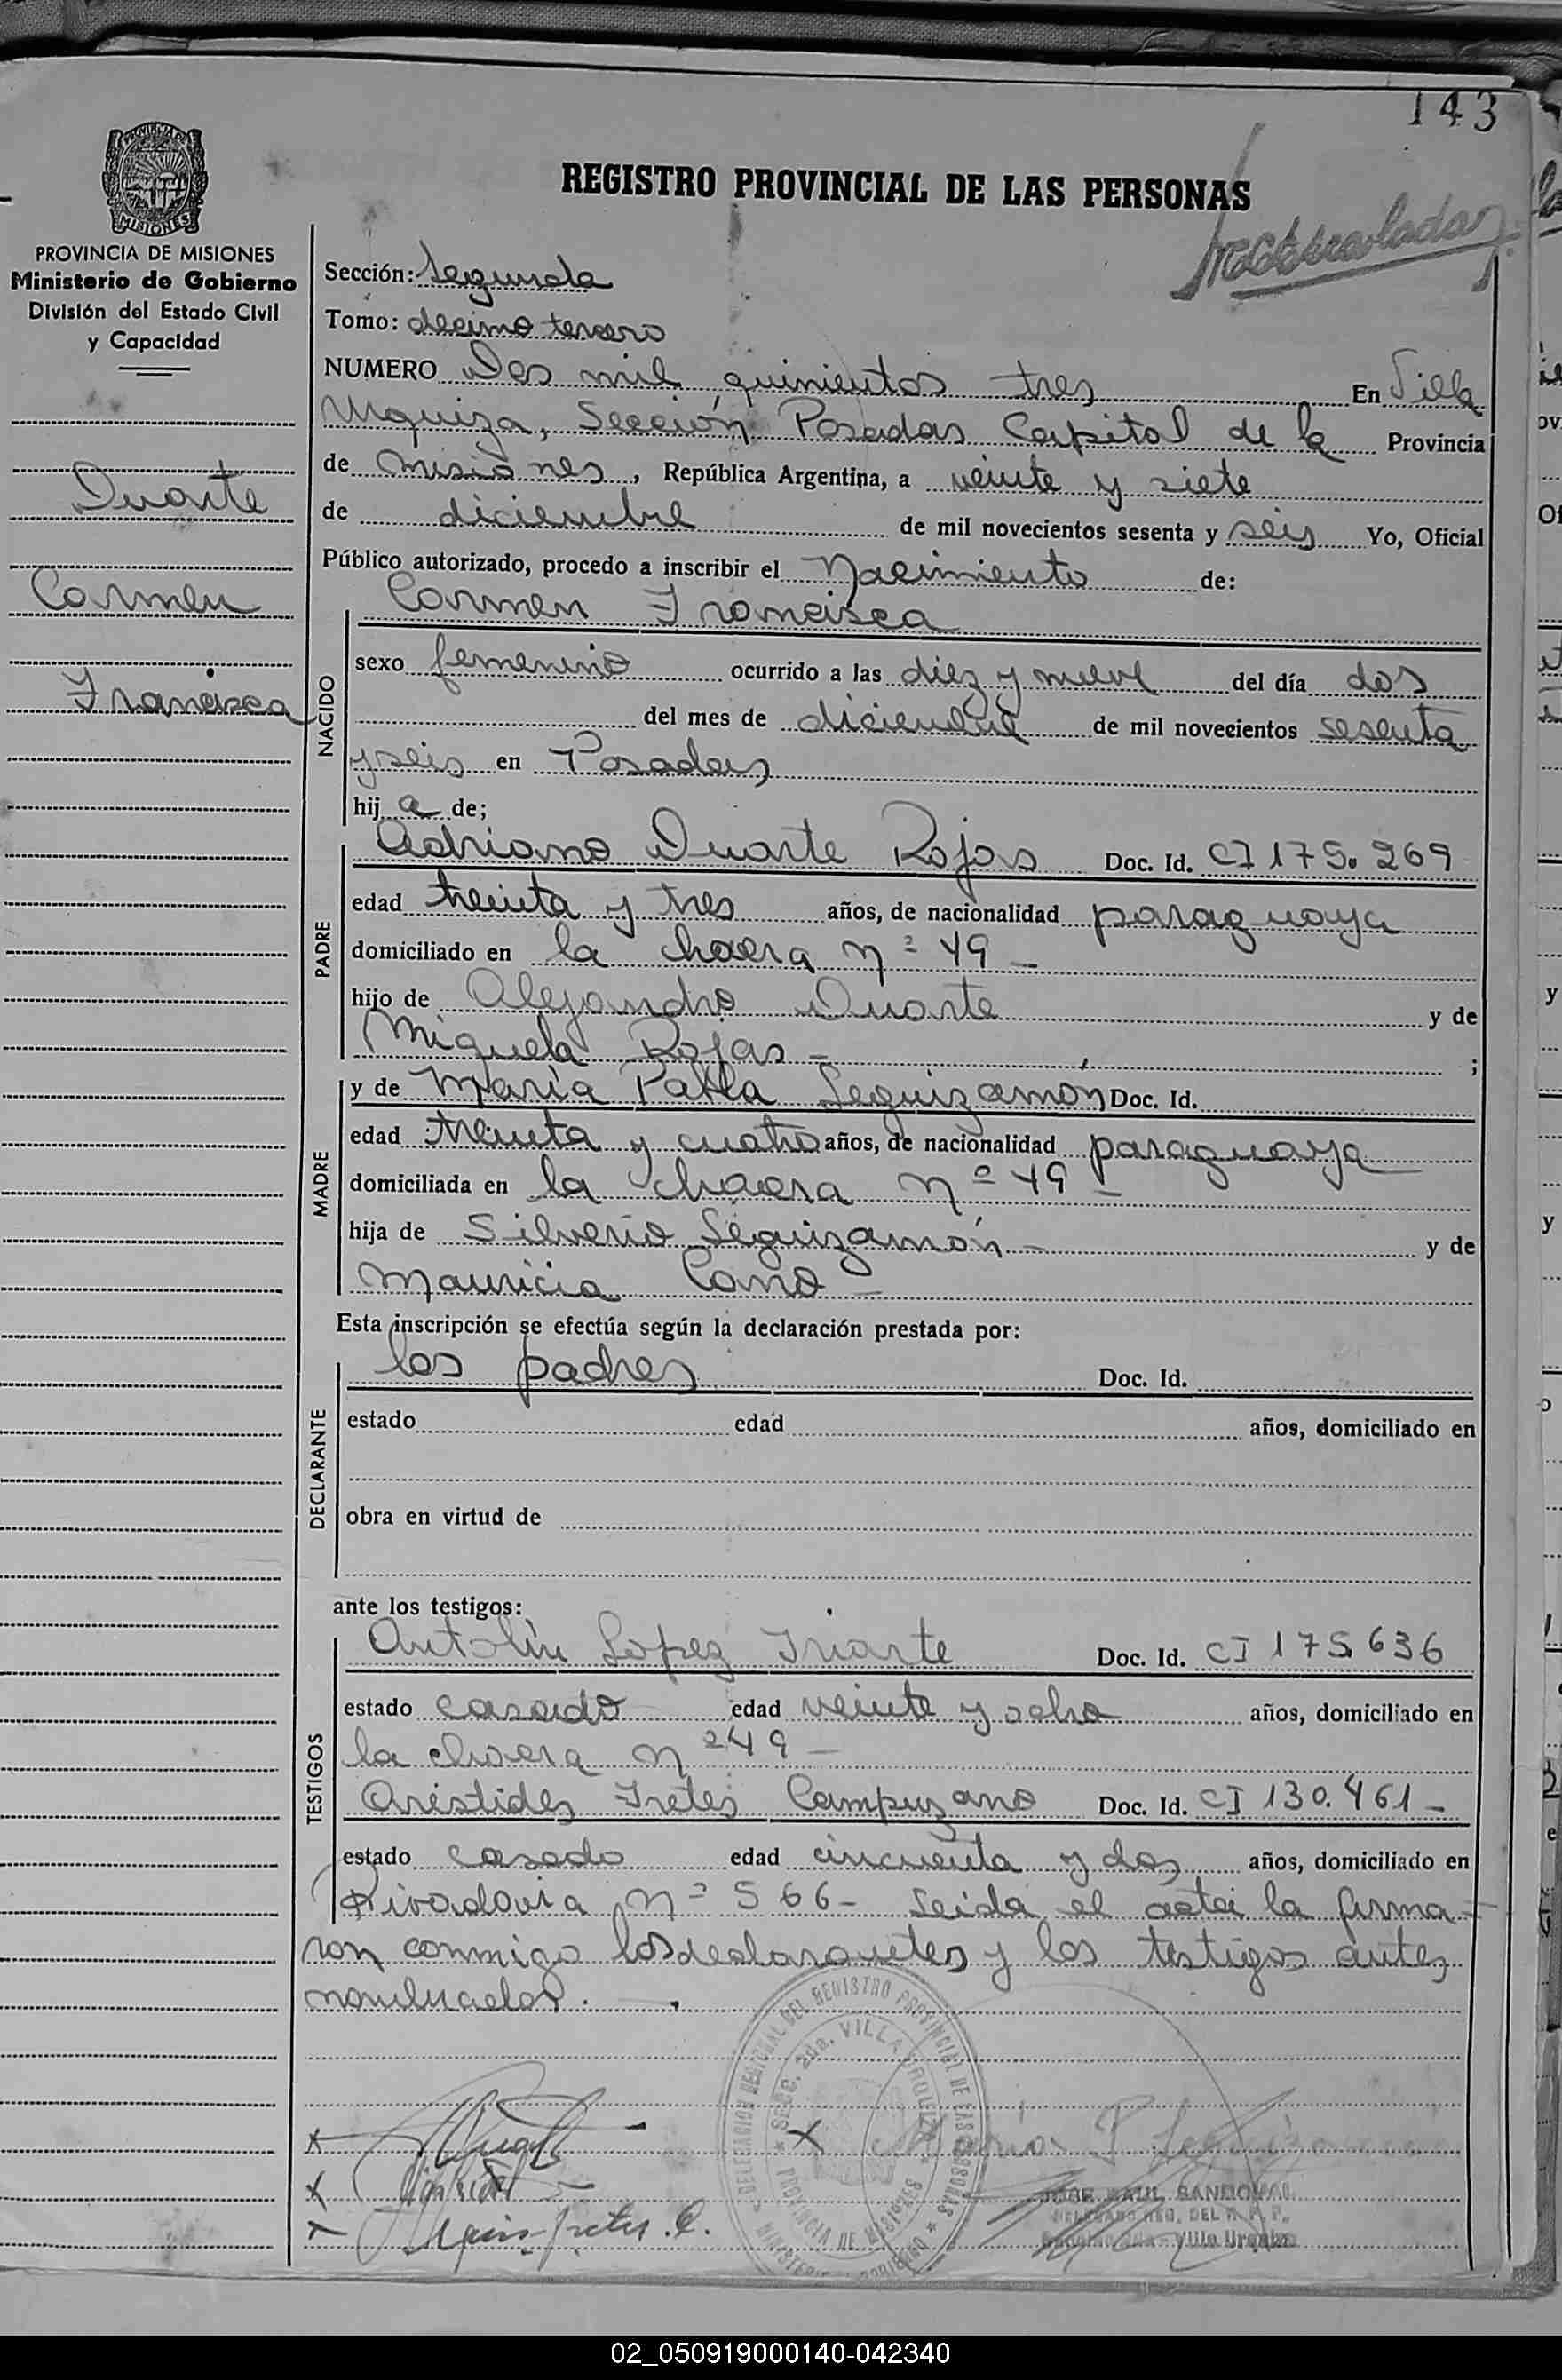 143
PROVINCIA DE MISIONES
MISIONES
PROVINCIA DE MISIONES
Ministerio de Gobierno
División del Estado Civil
y Capacidad
Duarte
Carmen
Francisca
REGISTRO PROVINCIAL DE LAS PERSONAS
Sección: Segunda
Tomo: decimo tercero
NUMERO Dos mil quinientos tres En Villa
Urquiza, Sección Posadas Capital de la Provincia
de Misiones, República Argentina, a veinte y siete
de diciembre de mil novecientos sesenta y seis Yo, Oficial
Público autorizado, procedo a inscribir el Nacimiento de:
Carmen Francisca
NACIDO
sexo femenino ocurrido a las diez y nueve del día dos
del mes de diciembre de mil novecientos sesenta
y seis en Posadas
hij a de;
PADRE
Adriano Duarte Rojas Doc. Id. CI 175.269
edad treinta y tres años, de nacionalidad paraguaya
domiciliado en la chacra nº 49 -
hijo de Alejandro Duarte y de
Miguela Rojas - ;
MADRE
y de María Pabla Leguizamón Doc. Id.
edad treinta y cuatro años, de nacionalidad paraguaya
domiciliada en la chacra nº 49 -
hija de Silverio Leguizamón - y de
Mauricia Cano -
Esta inscripción se efectúa según la declaración prestada por:
DECLARANTE
los padres Doc. Id.
estado edad años, domiciliado en
obra en virtud de
ante los testigos:
TESTIGOS
Antolín Lopez Iriarte Doc. Id. CI 175.636
estado casado edad veinte y ocho años, domiciliado en
la chacra nº 49 -
Arístides Fretes Campuzano Doc. Id. CI 130.461 -
estado casado edad cincuenta y dos años, domiciliado en
Rivadavia nº 566 - Leida el acta la firma-
ron conmigo los declarantes y los testigos antes
nombrados.
DELEGACION REGIONAL DEL REGISTRO PROVINCIAL DE LAS PERSONAS
SECC. 2da. VILLA URQUIZA
PROVINCIA DE MISIONES
JOSE RAUL SANDOVAL
Villa Urquiza
02_050919000140-042340